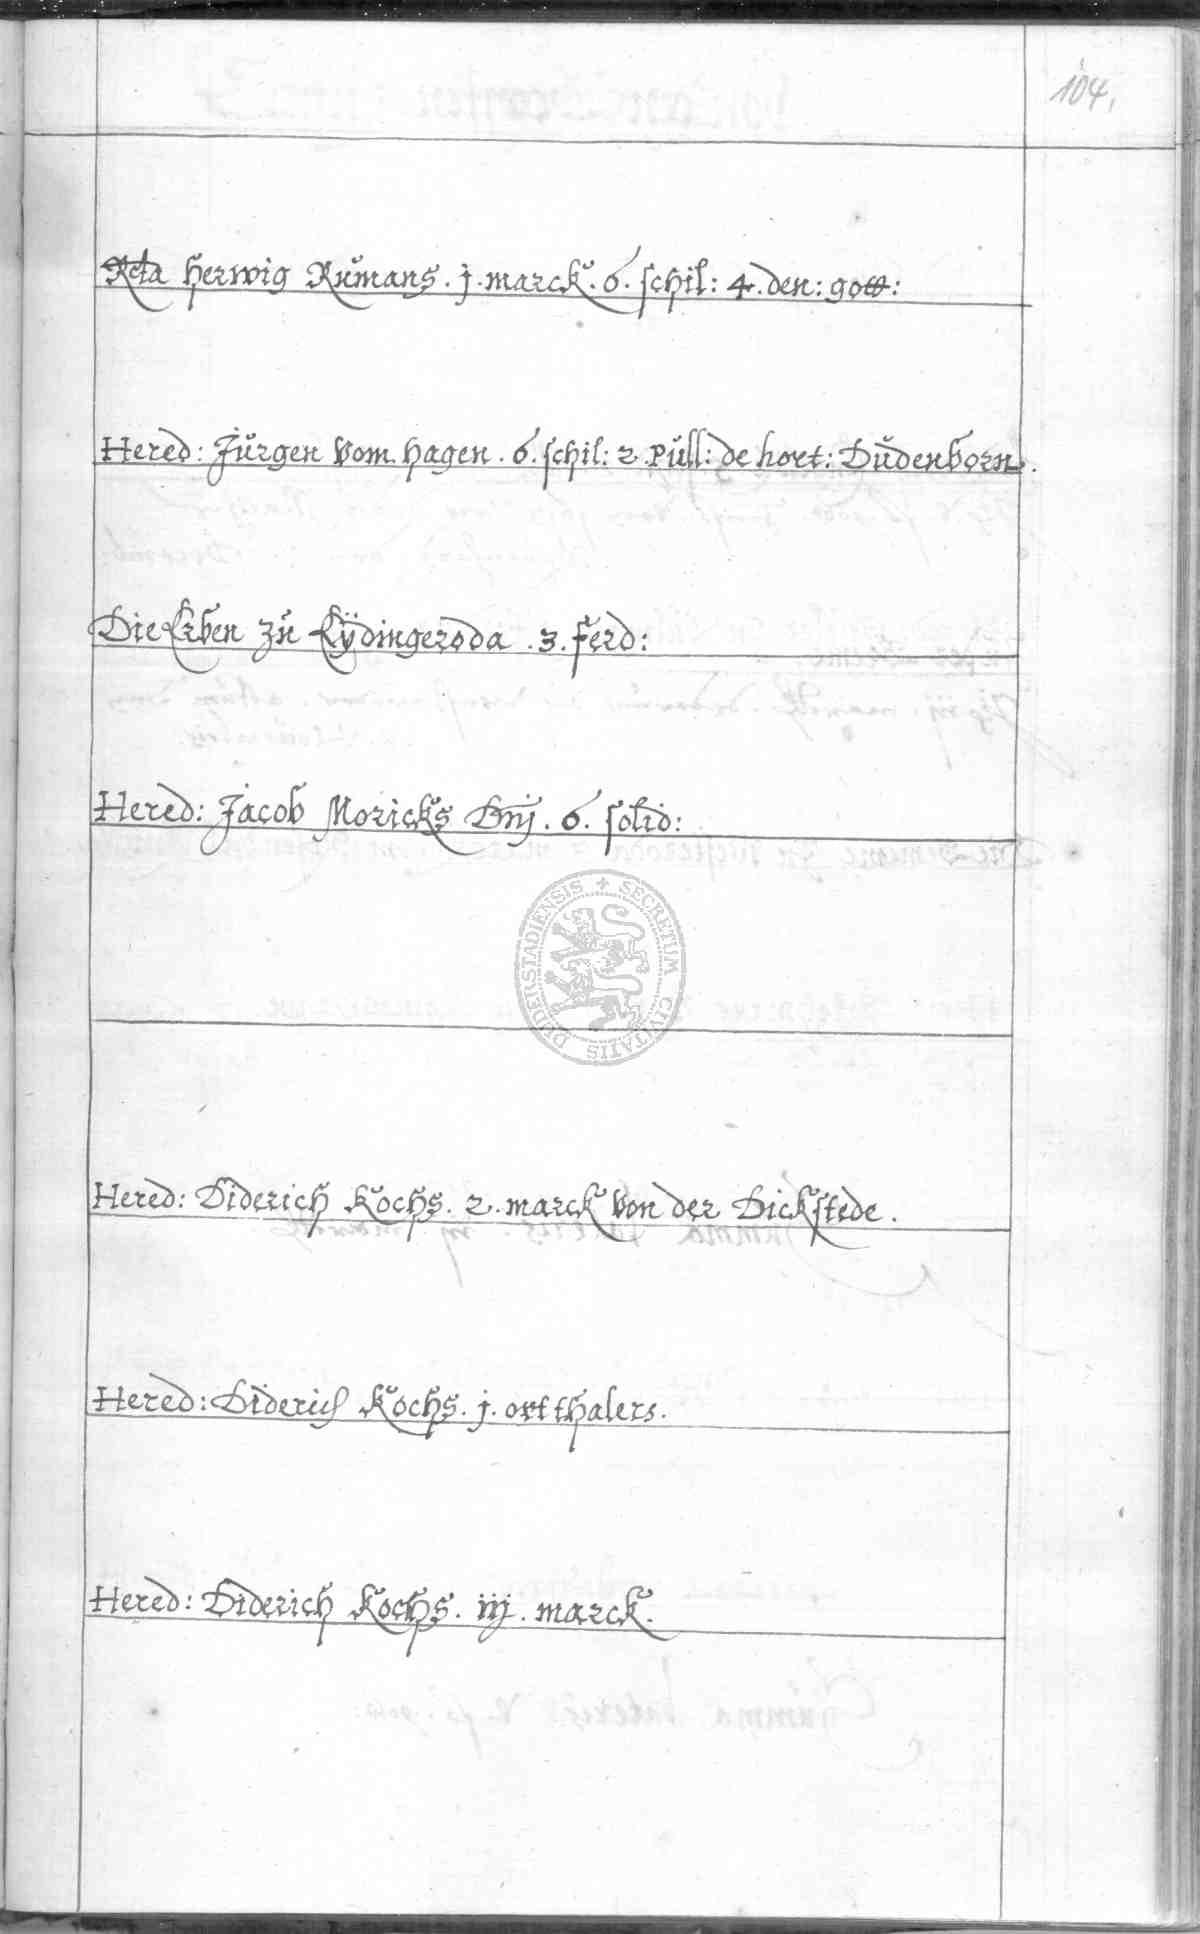 104.
Rcta Herwig Rumans . j . marck . 6 . schil : 4 . den : gott :
Hered : Jürgen Vom Hagen . 6 . schil : 2 . pull : de hort : Düdenborn .
Die Erben zu Lÿdingeroda . 3 . ferd :
Hered : Jacob Moricks Dnj . 6 . solid :
DUDERSTADIENSIS + SECRETUM CIVITATIS
Hered : Diderich Kochs . 2 . marck Von der Dickstede .
Hered : Diderich Kochs . j . ortthalers .
Hered : Diderich Kochs . iij . marck .